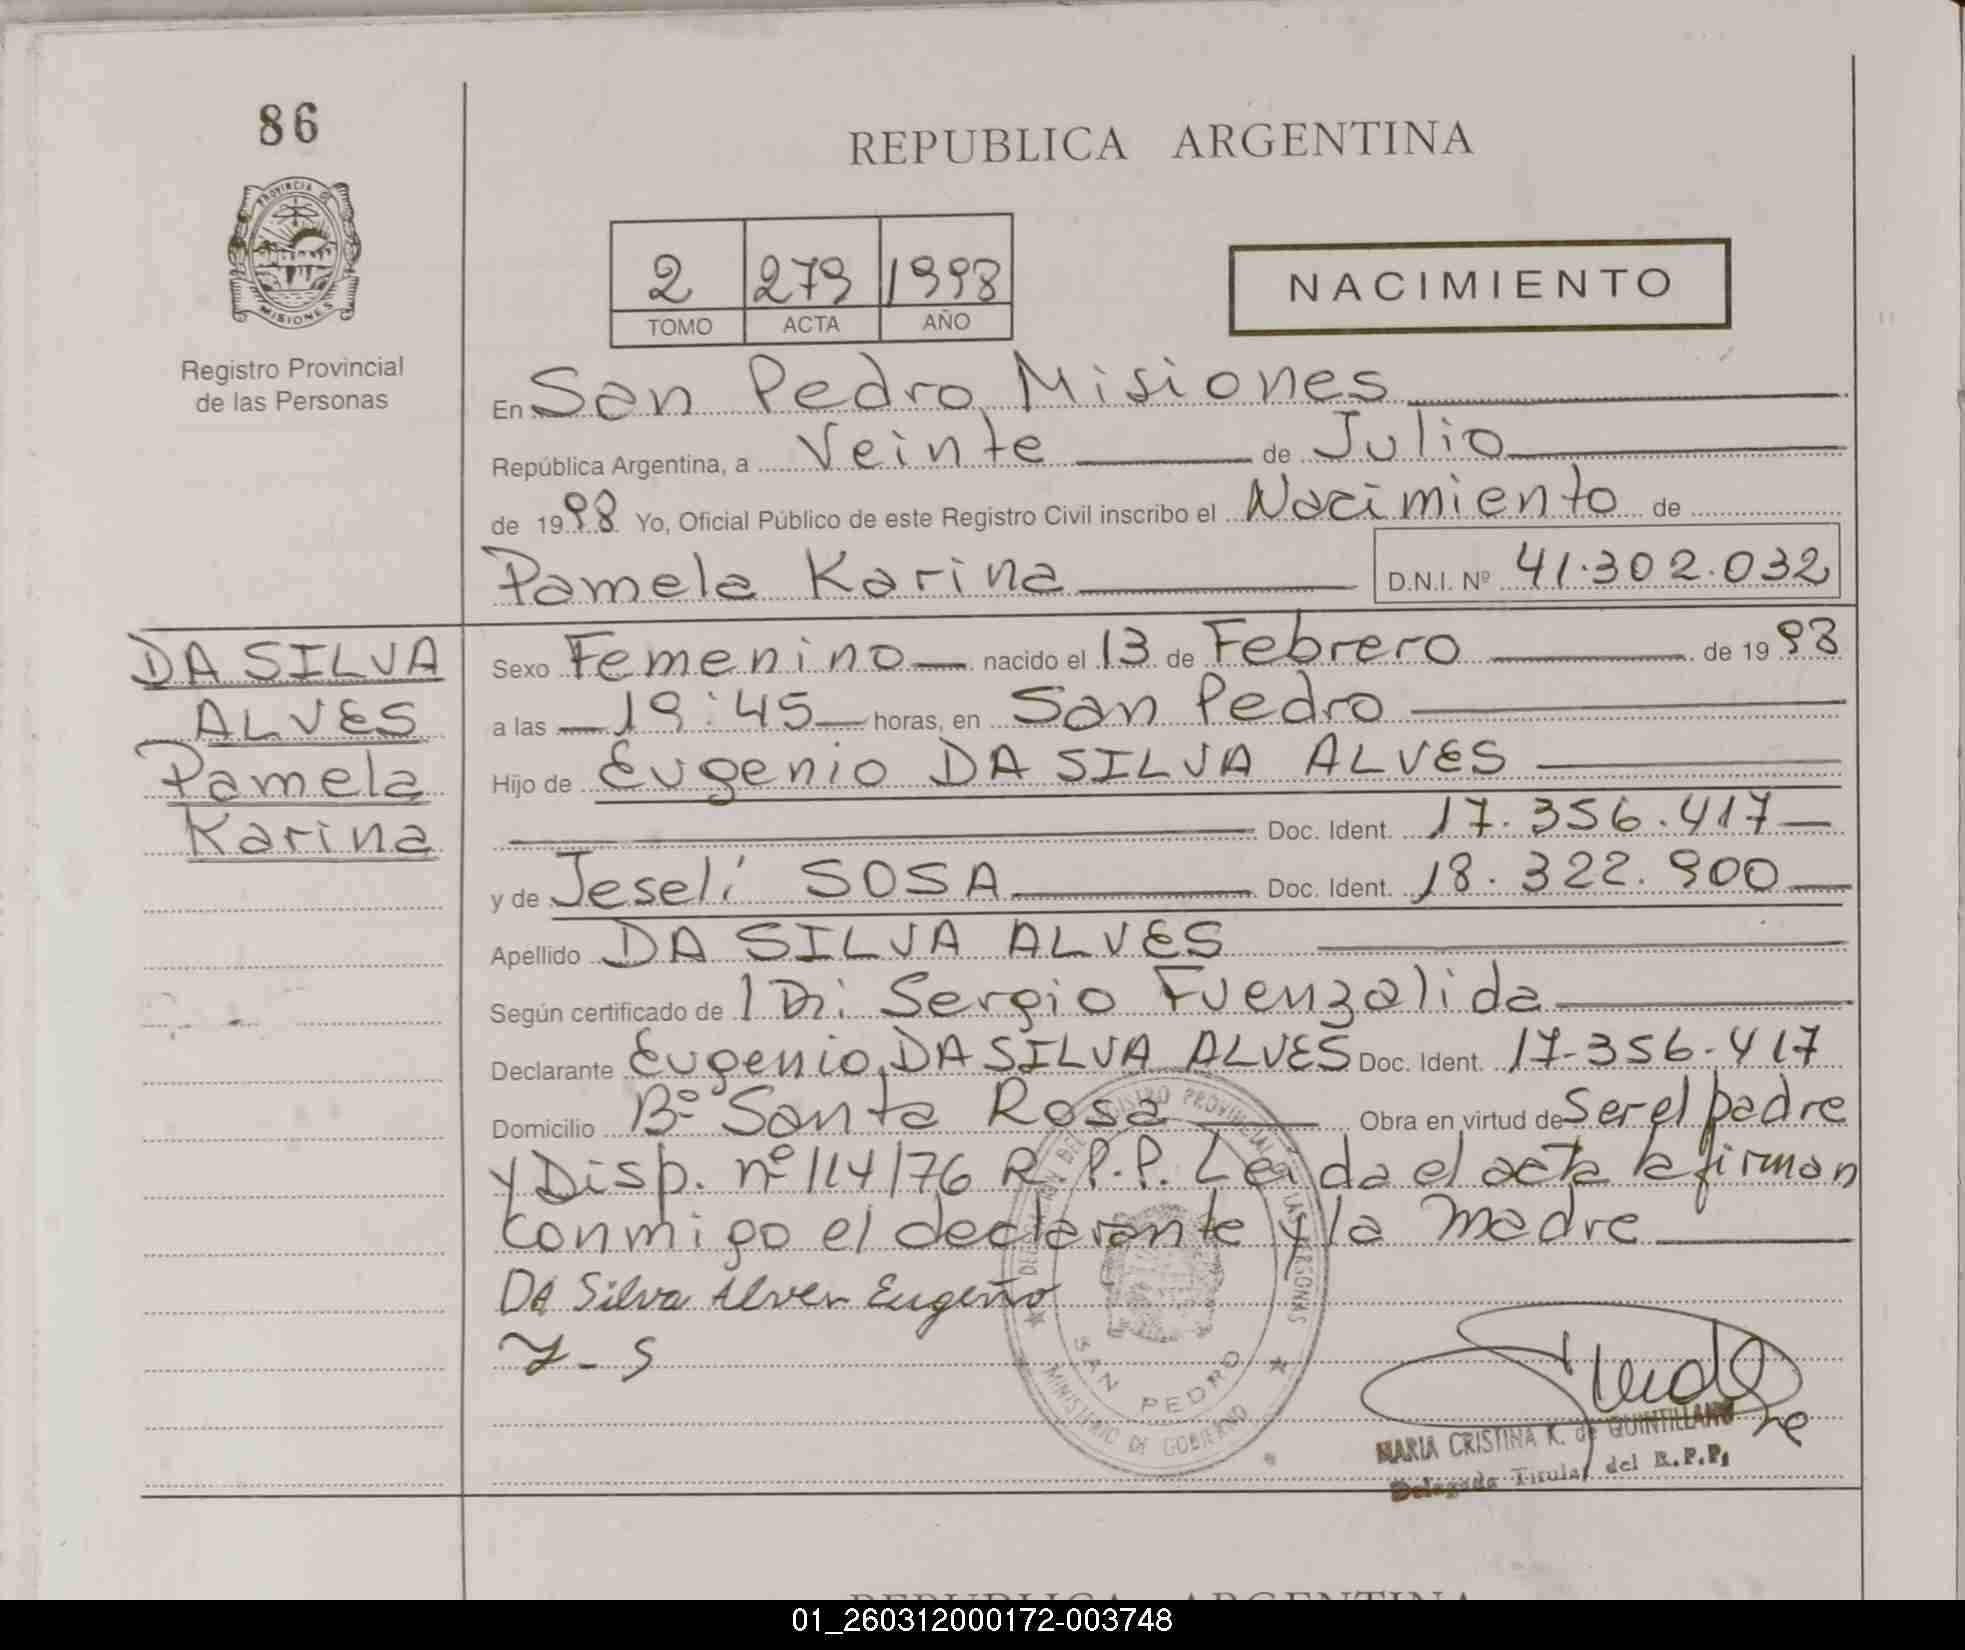 86
REPUBLICA ARGENTINA
PROVINCIA DE
MISIONES
Registro Provincial
de las Personas
2 279 1998
TOMO ACTA AÑO
NACIMIENTO
En San Pedro, Misiones
República Argentina, a Veinte de Julio
de 1998 Yo, Oficial Público de este Registro Civil inscribo el Nacimiento de
Pamela Karina D.N.I. Nº 41.302.032
DA SILVA
ALVES
Pamela
Karina
Sexo Femenino nacido el 13 de Febrero de 1998
a las 19:45 horas, en San Pedro
Hijo de Eugenio DA SILVA ALVES
Doc. Ident. 17.356.417
y de Jeseli SOSA Doc. Ident. 18.322.900
Apellido DA SILVA ALVES
Según certificado de l Dr: Sergio Fuenzalida
Declarante Eugenio DA SILVA ALVES Doc. Ident. 17-356-417
Domicilio Bº Santa Rosa Obra en virtud de Ser el padre
y Disp. nº 114/76 R.P.P. Leida el acta la firman
conmigo el declarante y la madre
DA Silva Alves Eugenio
J - S
REGISTRO PROVINCIAL DE LAS PERSONAS
SAN PEDRO
MINISTERIO DE GOBIERNO
MARIA CRISTINA K. de QUINTILLAN
Delegada Titular del R.P.P.
REPUBLICA ARGENTINA
01_260312000172-003748